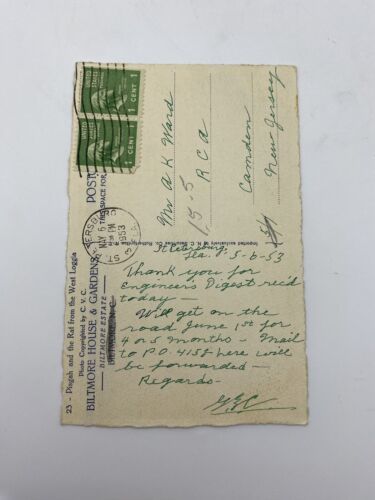 23 - Pisgah and the Rat from the West Loggia
Photo Copyrighted by C. V. C.
BILTMORE HOUSE & GARDENS
BILTMORE ESTATE
POST
THE SPACE FOR
UNITED STATES
1 CENT 1
UNITED STATES
1 CENT 1
ST. PETERSBURG
MAY 6
PM
1953
FLA.
Mr A K Ward
R C A
Camden
New Jersey
15.5
St Petersburg
Fla. 5-6-53
Thank you for
Engineer's Digest rec'd
today -
Will get on the
road June 1st for
4 or 5 months - Mail
to P.O. 4158 here will
be forwarded -
Regards -